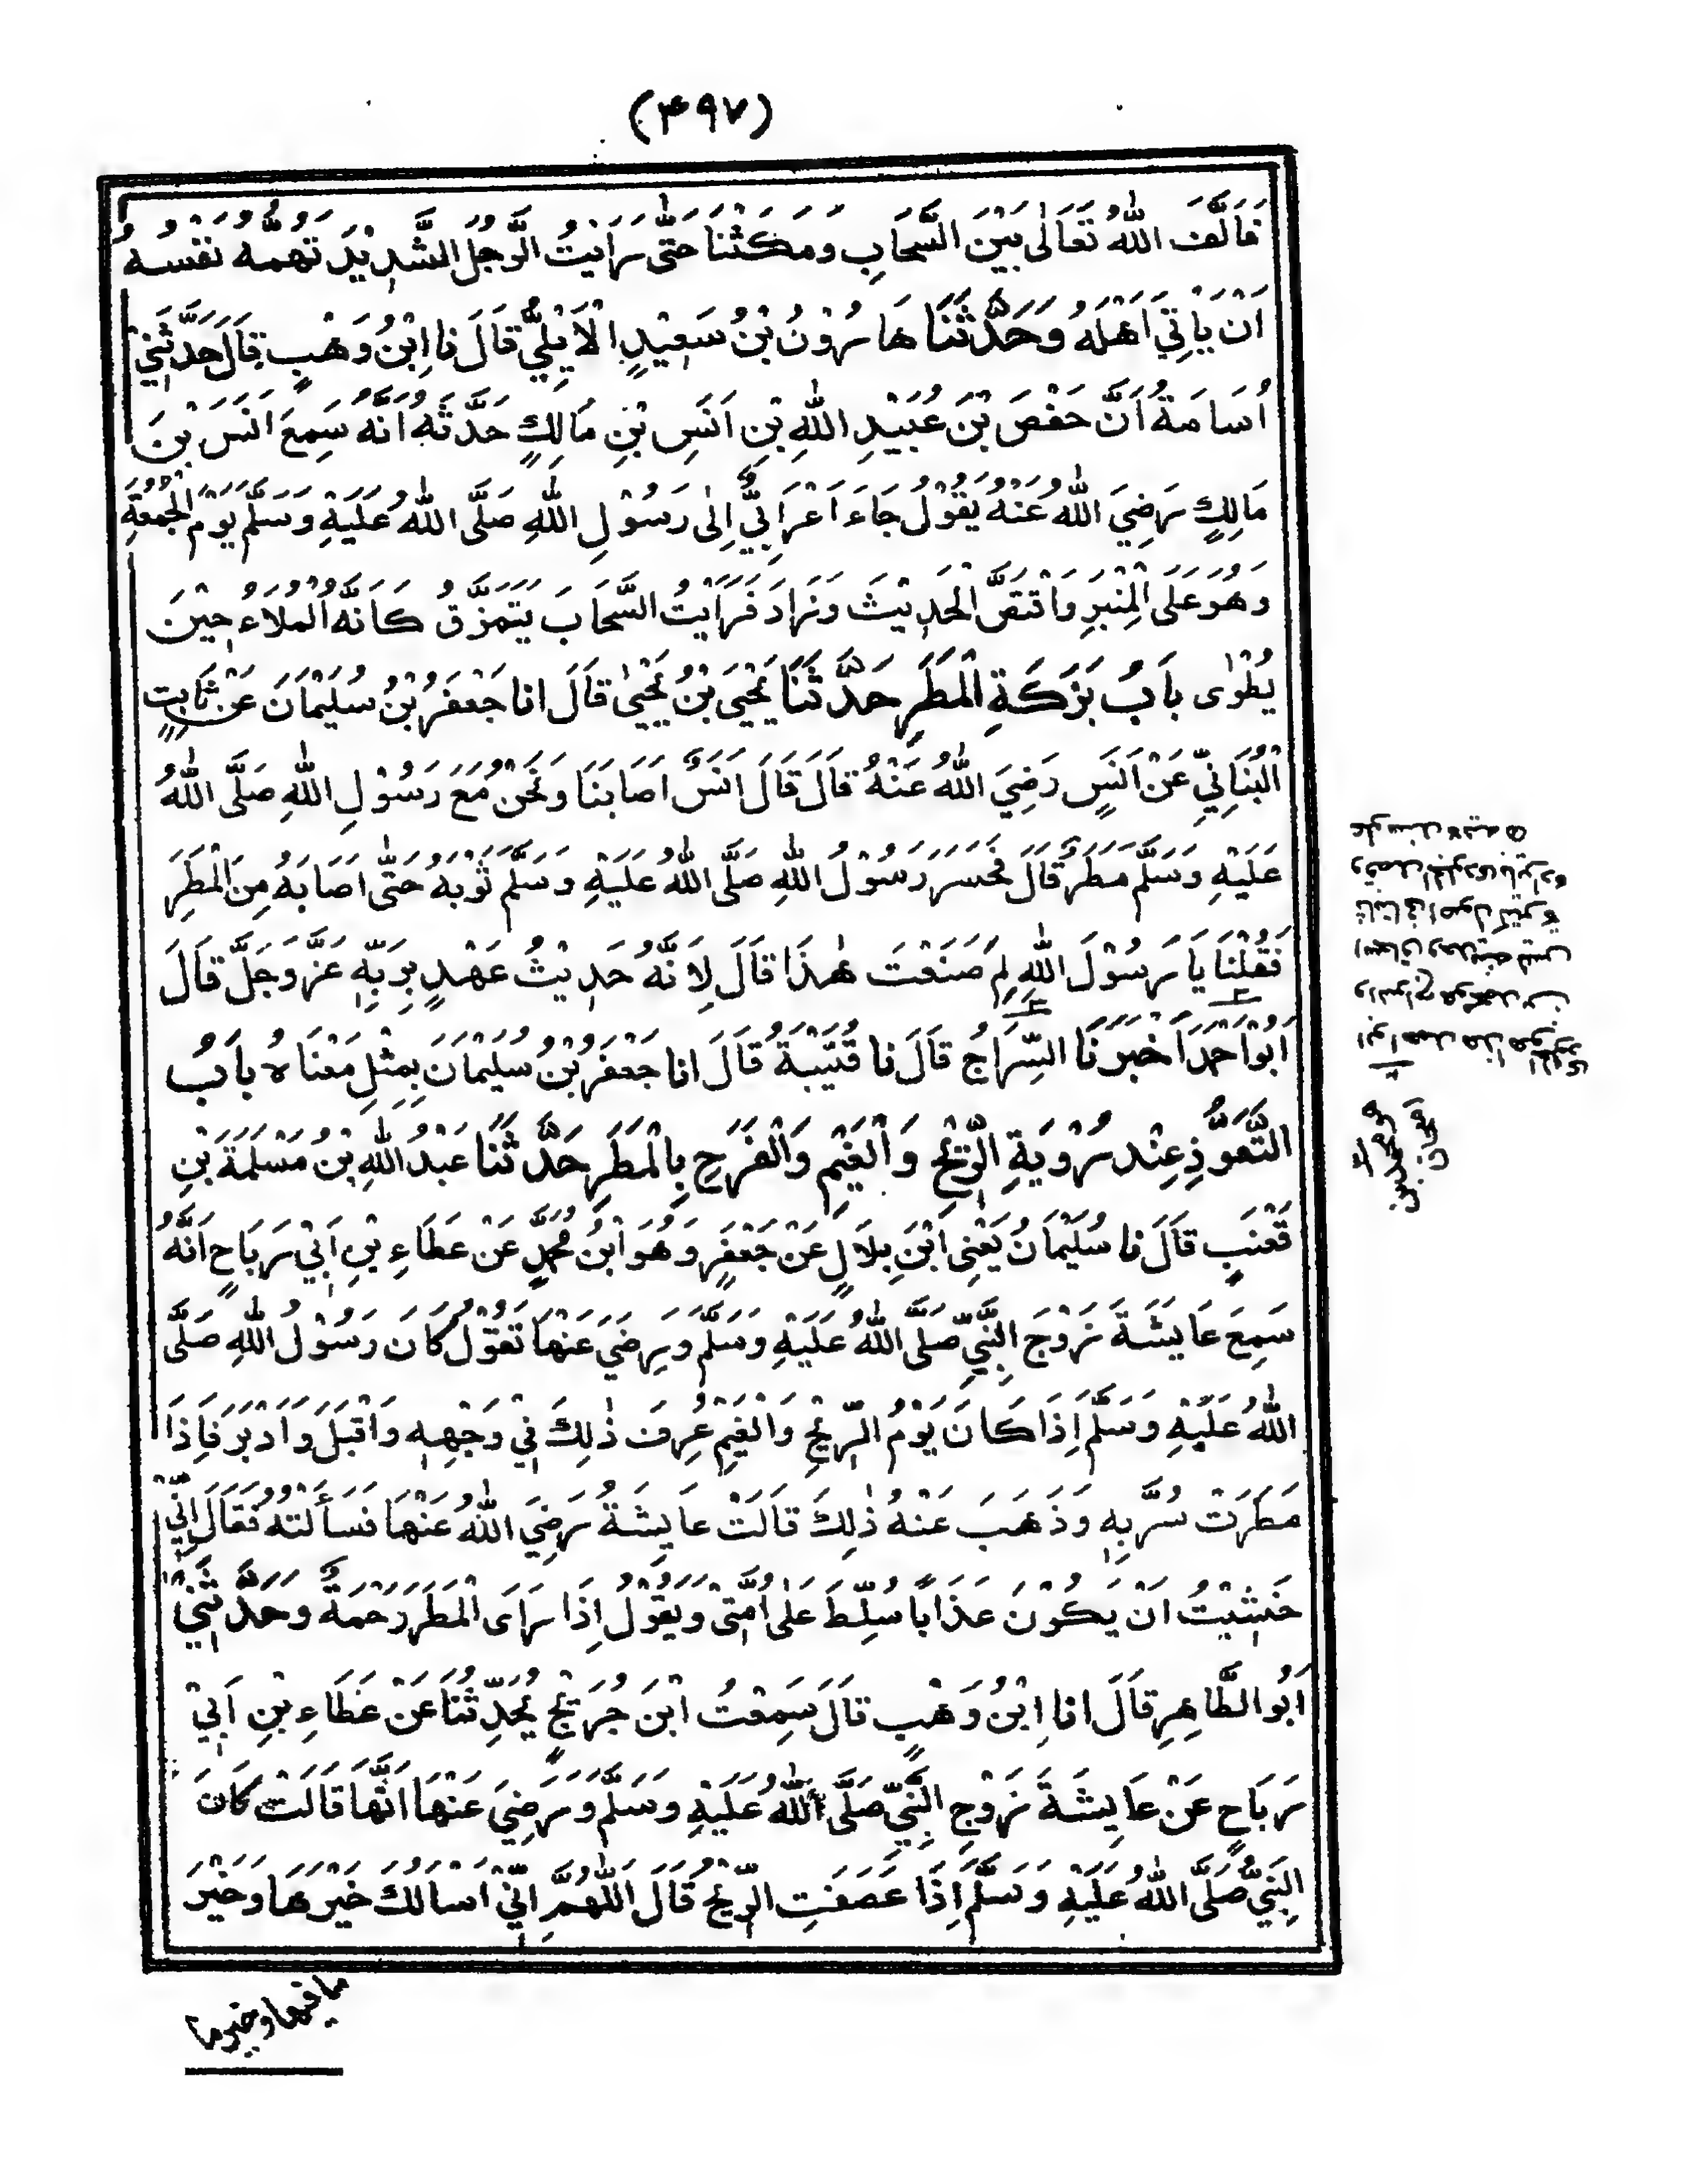 (۴۹۷)
فَاَلَّفَ اللّٰهُ تَعَالٰى بَيْنَ السَّحَابِ وَمَكَثْنَا حَتّٰى رَاَيْتُ الرَّجُلَ الشَّدِيْدَ تَهُمُّهُ نَفْسُهُ
اَنْ يَاْتِيَ اَهْلَهُ وَحَدَّثَنَا هَارُوْنُ بْنُ سَعِيْدٍ الْاَيْلِيُّ قَالَ نا اِبْنُ وَهْبٍ قَالَ حَدَّثَنِيْ
اُسَامَةُ اَنَّ حَفْصَ بْنَ عُبَيْدِ اللّٰهِ بْنِ اَنَسِ بْنِ مَالِكٍ حَدَّثَهُ اَنَّهُ سَمِعَ اَنَسَ بْنَ
مَالِكٍ رَضِيَ اللّٰهُ عَنْهُ يَقُوْلُ جَاءَ اَعْرَابِيٌّ اِلٰى رَسُوْلِ اللّٰهِ صَلَّى اللّٰهُ عَلَيْهِ وَسَلَّمَ يَوْمَ الْجُمُعَةِ
وَهُوَ عَلَى الْمِنْبَرِ وَاقْتَصَّ الْحَدِيْثَ وَزَادَ فَرَاَيْتُ السَّحَابَ يَتَمَزَّقُ كَاَنَّهُ الْمُلَاءُ حِيْنَ
يُطْوٰى بَابُ بَرَكَةِ الْمَطَرِ حَدَّثَنَا يَحْيَى بْنُ يَحْيٰى قَالَ انا جَعْفَرُ بْنُ سُلَيْمَانَ عَنْ ثَابِتٍ
الْبُنَانِيِّ عَنْ اَنَسٍ رَضِيَ اللّٰهُ عَنْهُ قَالَ قَالَ اَنَسٌ اَصَابَنَا وَنَحْنُ مَعَ رَسُوْلِ اللّٰهِ صَلَّى اللّٰهُ
عَلَيْهِ وَسَلَّمَ مَطَرٌ قَالَ فَحَسَرَ رَسُوْلُ اللّٰهِ صَلَّى اللّٰهُ عَلَيْهِ وَسَلَّمَ ثَوْبَهُ حَتّٰى اَصَابَهُ مِنَ الْمَطَرِ
فَقُلْنَا يَا رَسُوْلَ اللّٰهِ لِمَ صَنَعْتَ هٰذَا قَالَ لِاَنَّهُ حَدِيْثُ عَهْدٍ بِرَبِّهِ عَزَّ وَجَلَّ قَالَ
اَبُوْ اَحْمَدَ اَخْبَرَنَا السِّرَاجُ قَالَ نا قُتَيْبَةُ قَالَ انا جَعْفَرُ بْنُ سُلَيْمَانَ بِمِثْلِ مَعْنَاهُ بَابُ
التَّعَوُّذِ عِنْدَ رُوْيَةِ الرِّيْحِ وَالْغَيْمِ وَالْفَرَحِ بِالْمَطَرِ حَدَّثَنَا عَبْدُ اللّٰهِ بْنُ مَسْلَمَةَ بْنِ
قَعْنَبٍ قَالَ نا سُلَيْمَانُ يَعْنِى ابْنَ بِلَالٍ عَنْ جَعْفَرٍ وَهُوَ ابْنُ مُحَمَّدٍ عَنْ عَطَاءِ بْنِ اَبِيْ رَبَاحٍ اَنَّهُ
سَمِعَ عَايِشَةَ زَوْجَ النَّبِيِّ صَلَّى اللّٰهُ عَلَيْهِ وَسَلَّمَ وَرَضِيَ عَنْهَا تَقُوْلُ كَانَ رَسُوْلُ اللّٰهِ صَلَّى
اللّٰهُ عَلَيْهِ وَسَلَّمَ اِذَا كَانَ يَوْمُ الرِّيْحِ وَالْغَيْمِ عُرِفَ ذٰلِكَ فِيْ وَجْهِهِ وَاَقْبَلَ وَاَدْبَرَ فَاِذَا
مَطَرَتْ سُرَّ بِهِ وَذَهَبَ عَنْهُ ذٰلِكَ قَالَتْ عَايِشَةُ رَضِيَ اللّٰهُ عَنْهَا فَسَأَلْتُهُ فَقَالَ اِنِّيْ
خَشِيْتُ اَنْ يَكُوْنَ عَذَابًا سُلِّطَ عَلٰى اُمَّتِيْ وَيَقُوْلُ اِذَا رَاَى الْمَطَرَ رَحْمَةٌ وَحَدَّثَنِيْ
اَبُو الطَّاهِرِ قَالَ انا اِبْنُ وَهْبٍ قَالَ سَمِعْتُ ابْنَ جُرَيْجٍ يُحَدِّثُنَا عَنْ عَطَاءِ بْنِ اَبِيْ
رَبَاحٍ عَنْ عَايِشَةَ زَوْجِ النَّبِيِّ صَلَّى اللّٰهُ عَلَيْهِ وَسَلَّمَ وَرَضِيَ عَنْهَا اَنَّهَا قَالَتْ كَانَ
النَّبِيُّ صَلَّى اللّٰهُ عَلَيْهِ وَسَلَّمَ اِذَا عَصَفَتِ الرِّيْحُ قَالَ اللّٰهُمَّ اِنِّيْ اَسْاَلُكَ خَيْرَهَا وَخَيْرَ
ما فيها وخير ما